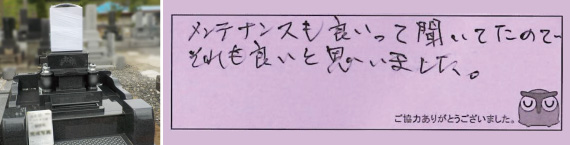 メンテナンスも良いって聞いてたので
それも良いと思いました。
ご協力ありがとうございました。